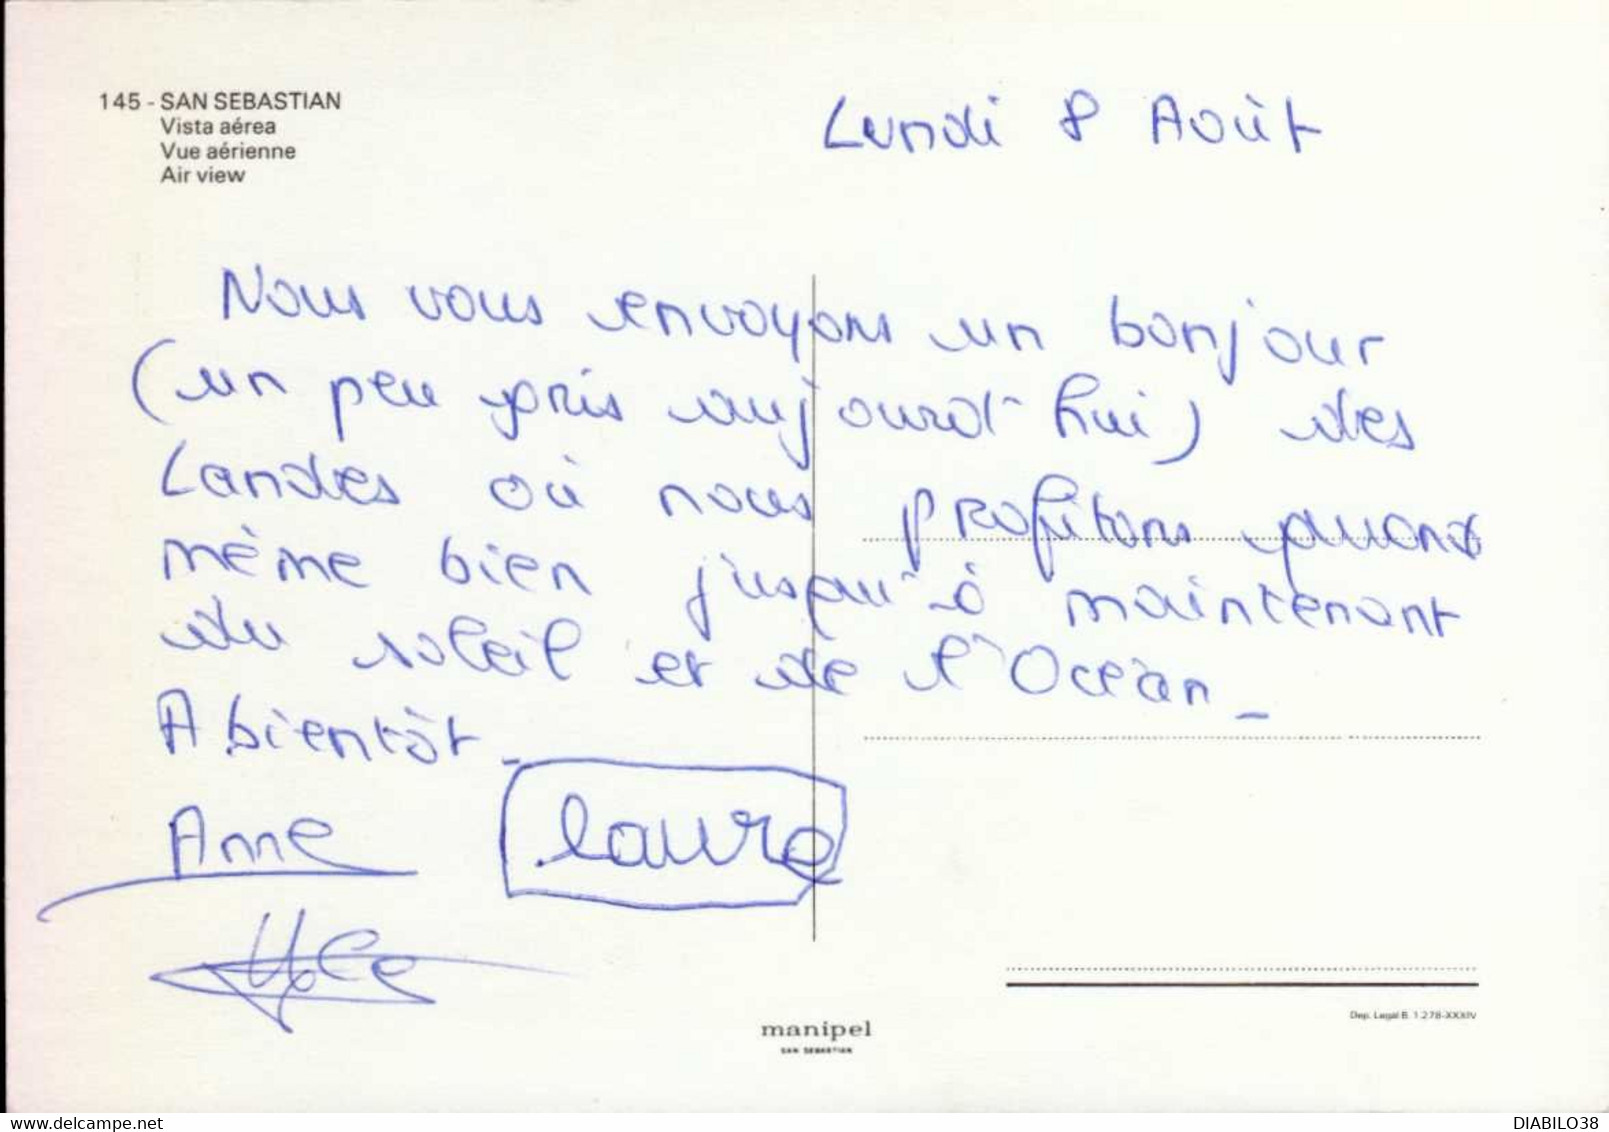 145 - SAN SEBASTIAN
Vista aérea
Vue aérienne
Air view
Lundi 8 Août
Nous vous envoyons un bonjour
(un peu gris aujourd'hui) des
Landes où nous profitons quand
même bien jusqu'à maintenant
du soleil et de l'Océan_
A bientôt_
Anne
laure
manipel
SAN SEBASTIAN
Dep. Legal B. 1.278-XXXIV
www.delcampe.net
DIABILO38